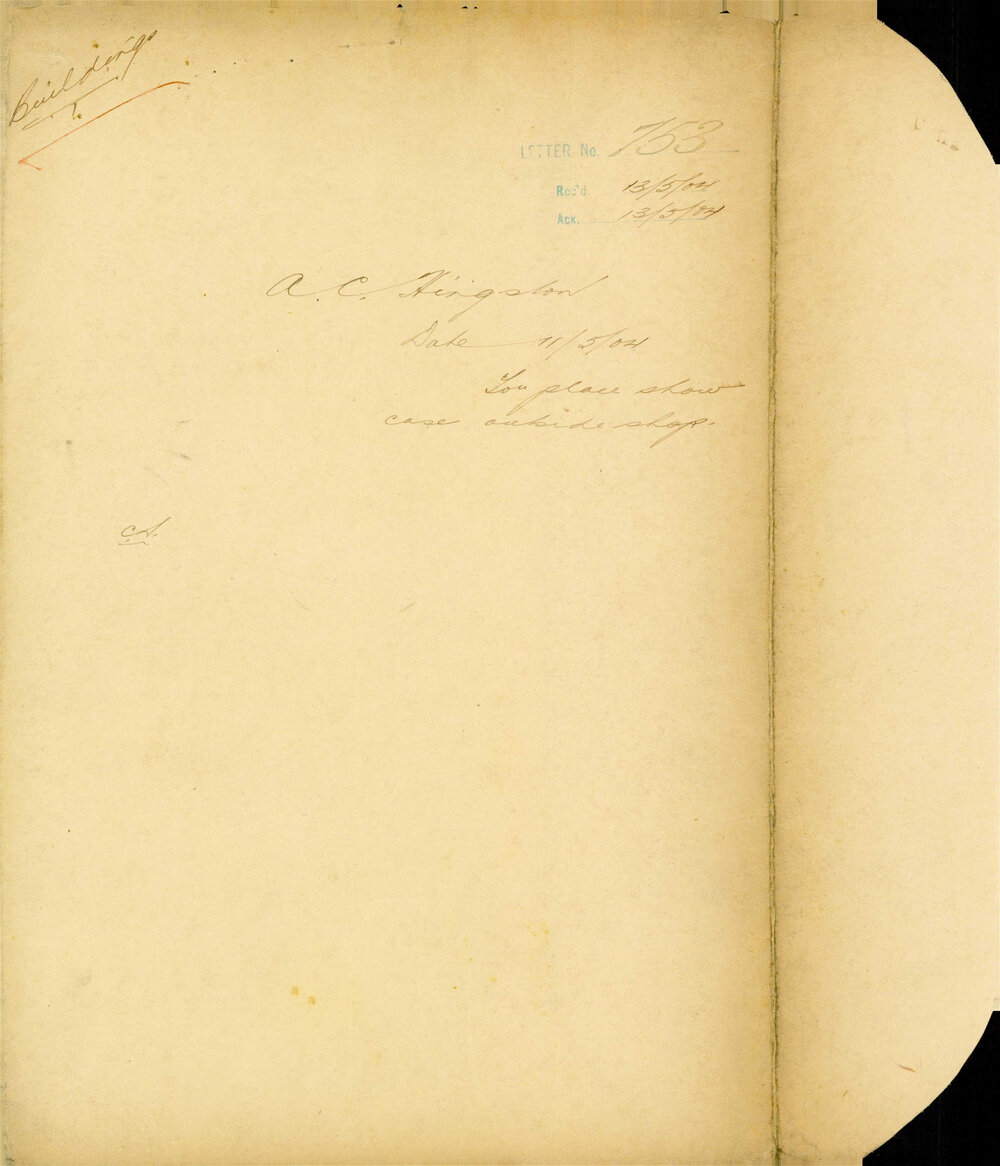 Buildings
LETTER No. 753
Rec'd 13/5/04
Ack. 13/5/04
A. C. Hingston
Date 11/5/04
Too place show
case outside shop.